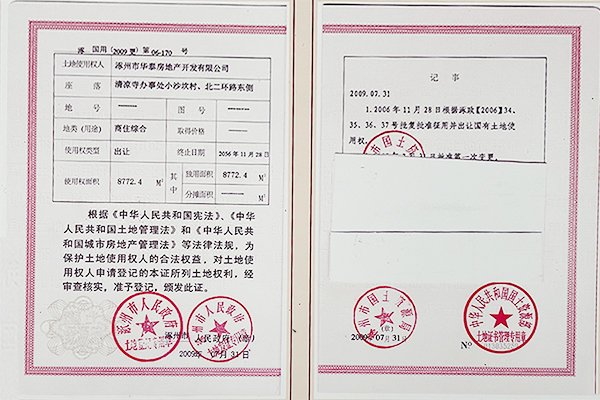 涿 国用（2009 更）第 06-170 号
土地使用权人 涿州市华泰房地产开发有限公司
座 落 清凉寺办事处小沙坎村、北二环路东侧
地 号 —— 图 号 ——
地类（用途） 商住综合 取得价格 ——
使用权类型 出让 终止日期 2056 年 11 月 28 日
使用权面积 8772.4 M² 其中 独用面积 8772.4 M²
分摊面积 —— M²
根据《中华人民共和国宪法》、《中华
人民共和国土地管理法》和《中华人民共
和国城市房地产管理法》等法律法规，为
保护土地使用权人的合法权益，对土地使
用权人申请登记的本证所列土地权利，经
审查核实，准予登记，颁发此证。
涿州市人民政府
土地登记专用章
涿州市 人民政府（章）
2009年 07 月 31 日
记 事
2009.07.31
1.2006 年 11 月 28 日根据涿政【2006】34、
35、36、37 号批复批准征用并出让国有土地使
用权。
月 31 日核准第一次变更。
州市国土资源局
（章）
2009年 07 月 31 日
中华人民共和国国土资源部
土地证书管理专用章
Nº